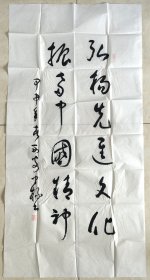 弘扬先进文化
振奋中國精神
甲申年